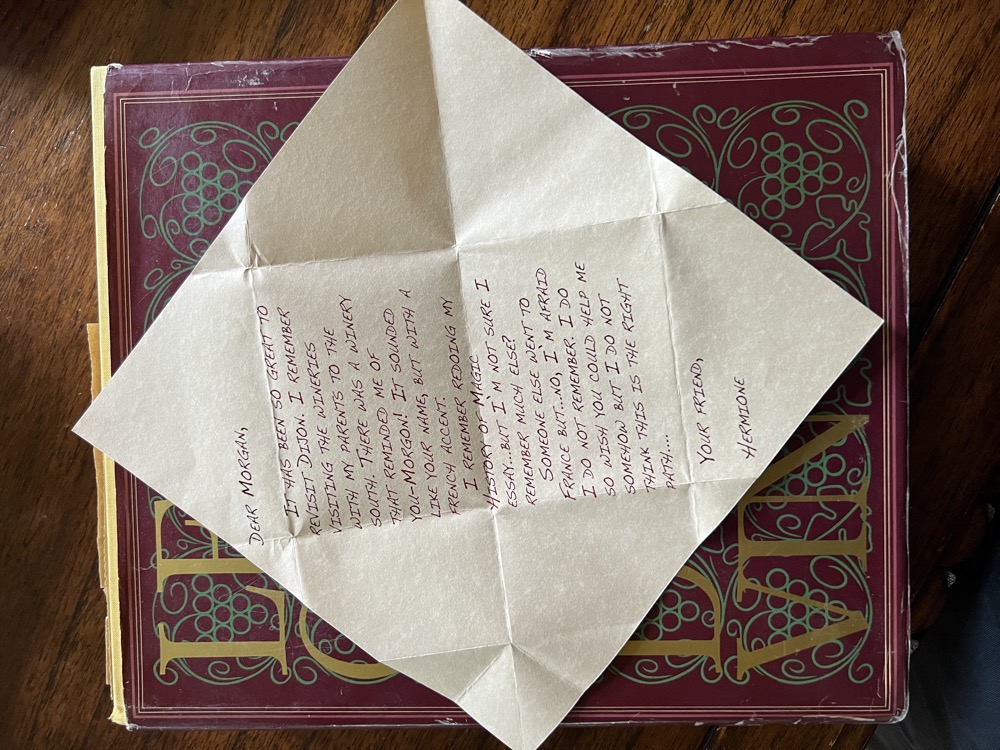 VIN
DEAR MORGAN,
IT HAS BEEN SO GREAT TO
REVISIT DIJON. I REMEMBER
VISITING THE WINERIES
WITH MY PARENTS TO THE
SOUTH. THERE WAS A WINERY
THAT REMINDED ME OF
YOU-MORGON! IT SOUNDED
LIKE YOUR NAME, BUT WITH A
FRENCH ACCENT.
I REMEMBER REDOING MY
HISTORY OF MAGIC
ESSAY...BUT I'M NOT SURE I
REMEMBER MUCH ELSE?
SOMEONE ELSE WENT TO
FRANCE BUT...NO, I'M AFRAID
I DO NOT REMEMBER. I DO
SO WISH YOU COULD HELP ME
SOMEHOW BUT I DO NOT
THINK THIS IS THE RIGHT
PATH...
YOUR FRIEND,
HERMIONE